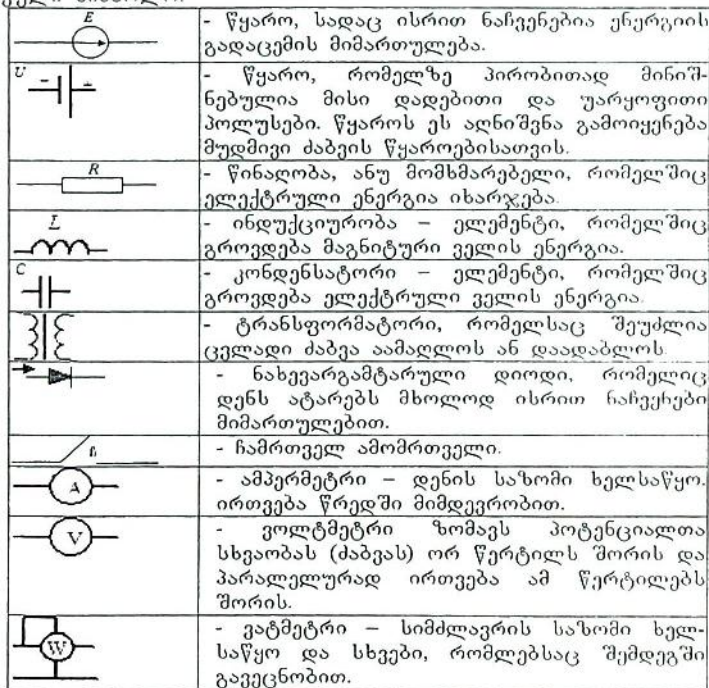 E
- წყარო, სადაც ისრით ნაჩვენებია ენერგიის
გადაცემის მიმართულება.
U
- +
- წყარო, რომელზე პირობითად მინიშ-
ნებულია მისი დადებითი და უარყოფითი
პოლუსები. წყაროს ეს აღნიშვნა გამოიყენება
მუდმივი ძაბვის წყაროებისათვის.
R
- წინაღობა, ანუ მომხმარებელი, რომელშიც
ელექტრული ენერგია იხარჯება.
L
- ინდუქციურობა – ელემენტი, რომელშიც
გროვდება მაგნიტური ველის ენერგია.
C
- კონდენსატორი – ელემენტი, რომელშიც
გროვდება ელექტრული ველის ენერგია.
- ტრანსფორმატორი, რომელსაც შეუძლია
ცვლადი ძაბვა აამაღლოს ან დაადაბლოს.
- ნახევარგამტარული დიოდი, რომელიც
დენს ატარებს მხოლოდ ისრით ნაჩვენები
მიმართულებით.
- ჩამრთველ ამომრთველი.
A
- ამპერმეტრი – დენის საზომი ხელსაწყო.
ირთვება წრედში მიმდევრობით.
V
- ვოლტმეტრი ზომავს პოტენციალთა
სხვაობას (ძაბვას) ორ წერტილს შორის და
პარალელურად ირთვება ამ წერტილებს
შორის.
W
- ვატმეტრი – სიმძლავრის საზომი ხელ-
საწყო და სხვები, რომლებსაც შემდეგში
გავეცნობით.